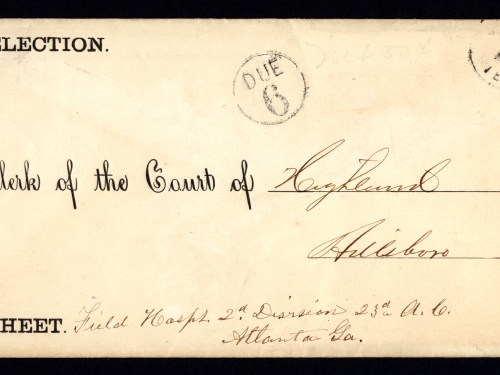 ELECTION.
DUE
6
Clerk of the Court of Highland
Hillsboro
SHEET. Field Hospt. 2d Division 23d A. C.
Atlanta Ga.